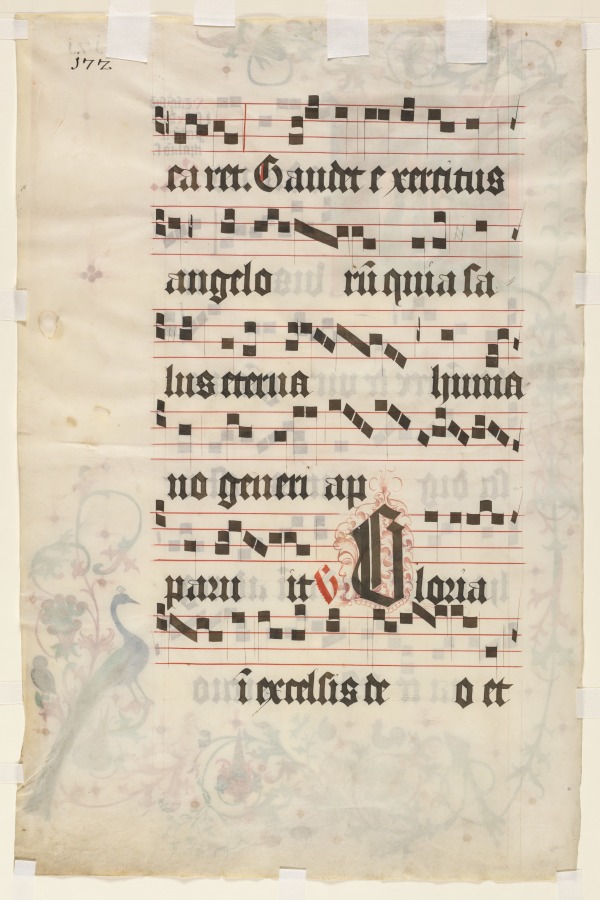 177
caret. Gaudet exercitus
angelorū quia sa
lus eterna huma
no generi ap
paruit Gloria
ī excelsis deo et